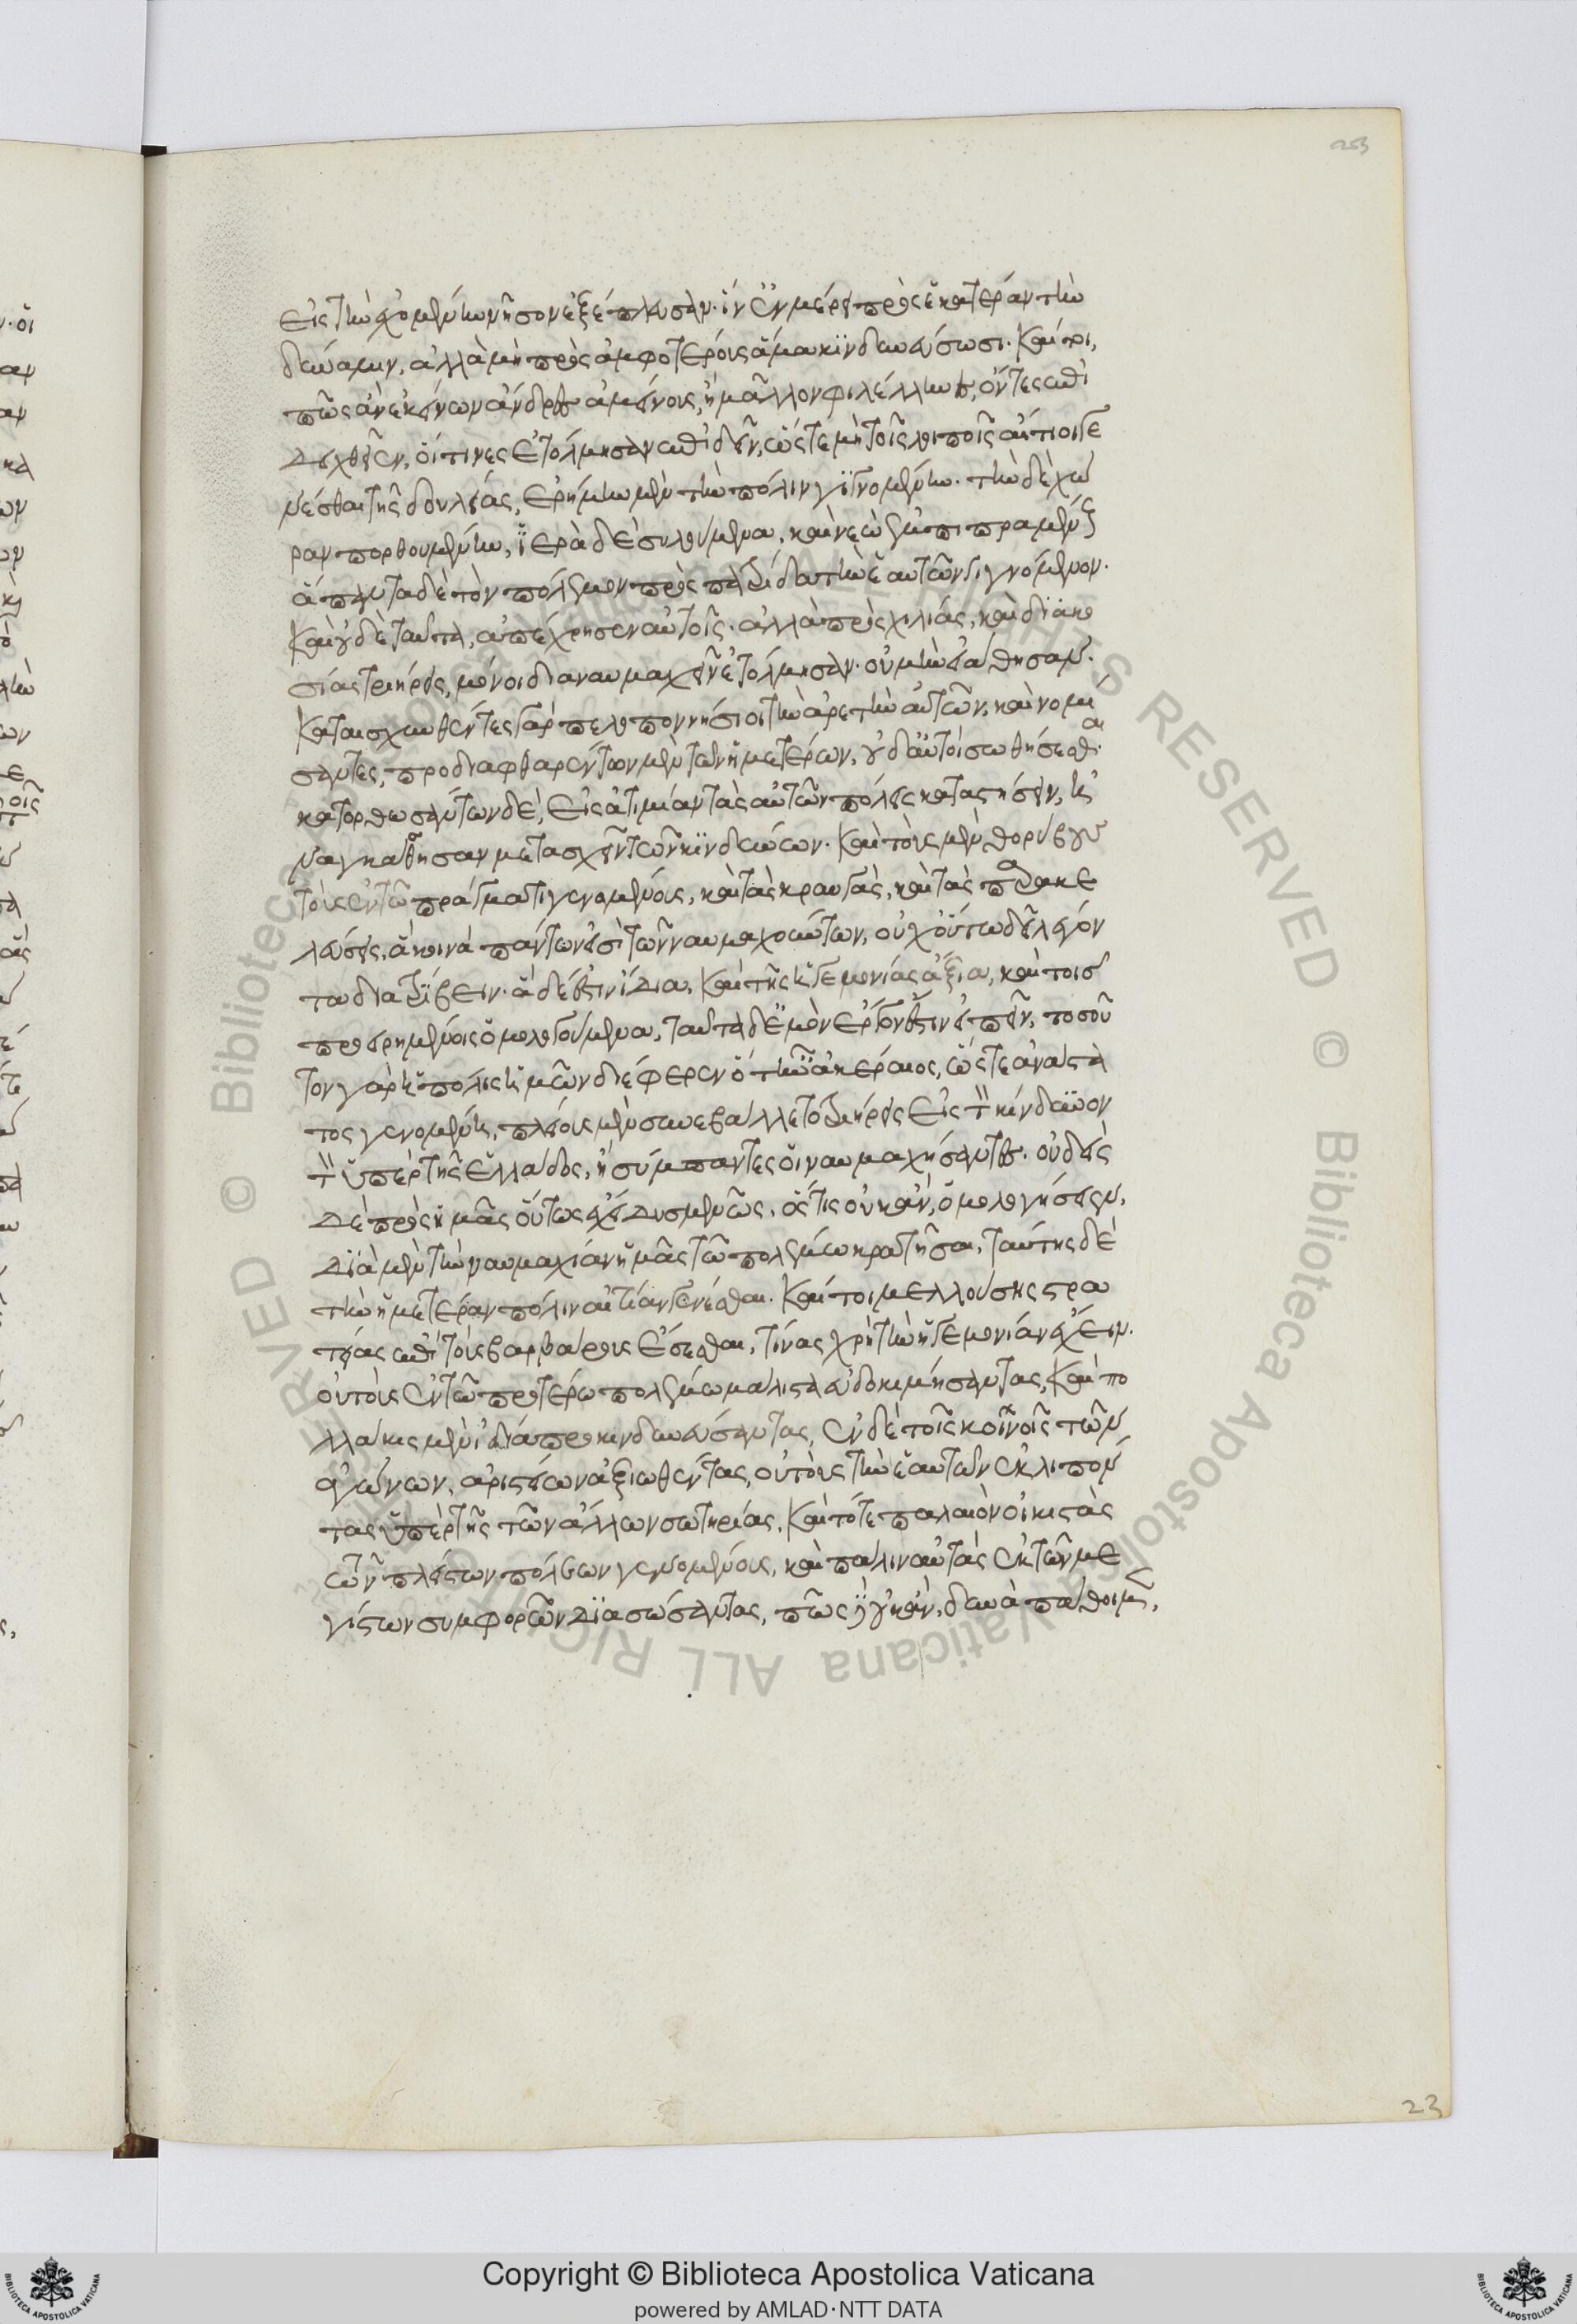 23
εἰς τὴν ἐχομένην νῆσον ἐξέπλευσαν· ἵν' ἐν μέρει πρὸς ἑκατέραν τὴν
δύναμιν, ἀλλὰ μὴ πρὸς ἀμφοτέρους ἅμα κινδυνεύσωσι. καίτοι,
πῶς ἂν ἐκείνων ἄνδρες ἀμείνους, ἢ μᾶλλον φιλέλληνες ὄντες ἐπι
δειχθεῖεν, οἵτινες ἔτλησαν ἐπιδεῖν, ὥστε μὴ τοῖς λοιποῖς αἴτιοι γε
νέσθαι τῆς δουλείας, ἐρήμην μὲν τὴν πόλιν γιγνομένην. τὴν δὲ χώ
ραν πορθουμένην, ἱερὰ δὲ συλώμενα, καὶ νεὼς ἐμπιπραμένους
ἅπαντα δὲ τὸν πόλεμον πρὸς πατρίδα τὴν ἑαυτῶν γιγνόμενον.
καὶ οὐδὲ ταῦτα, ἀπέχρησεν αὐτοῖς· ἀλλὰ πρὸς χιλίας, καὶ διακο
σίας τριήρεις, μόνοι διαναυμαχεῖν ἐτόλμησαν. οὐ μὴν εἰάθησαν.
καταισχυνθέντες γὰρ πελοποννήσιοι τὴν ἀρετὴν αὐτῶν, καὶ νομι
σαντες, προδιαφθαρέντων μὲν τῶν ἡμετέρων, οὐδ' αὐτοὶ σωθήσεσθαι.
κατορθωσάντων δὲ, εἰς ἀτιμίαν τὰς αὐτῶν πόλεις καταστήσειν, ἠ
ναγκάσθησαν μετασχεῖν τῶν κινδύνων. καὶ τοὺς μὲν θορύβους
τοὺς ἐν τῷ πράγματι γενομένους, καὶ τὰς κραυγὰς, καὶ τὰς παρακε
λεύσεις, ἃ κοινὰ πάντων ἐστὶ τῶν ναυμαχούντων, οὐχ οὕτω δεῖ λέγον
τα διατρίβειν· ἃ δ' ἐστὶν ἴδια, καὶ τῆς ἡγεμονίας ἄξια, καὶ τοῖς
προειρημένοις ὁμολογούμενα, ταῦτα δ' ἐμὸν ἔργον ἐστὶν εἰπεῖν, τοσοῦ
τον γὰρ ἡ πόλις ἡμῶν διέφερεν ὅτ' ἦν ἀκέραιος, ὥστε ἀνάστα
τος γενομένη, πλείους μὲν συνεβάλλετο τριήρεις εἰς τὸν κίνδυνον
τὸν ὑπὲρ τῆς ἑλλάδος, ἢ σύμπαντες οἱ ναυμαχήσαντες. οὐδεὶς
δὲ πρὸς ἡμᾶς οὕτως ἔχει δυσμενῶς, ὅστις οὐκ ἂν, ὁμολογήσειεν,
διὰ μὲν τὴν ναυμαχίαν ἡμᾶς τῷ πολέμῳ κρατῆσαι, ταύτης δὲ
τὴν ἡμετέραν πόλιν αἰτίαν γενέσθαι. καίτοι μελλούσης στρα
τείας ἐπὶ τοὺς βαρβάρους ἔσεσθαι, τίνας χρὴ τὴν ἡγεμονίαν ἔχειν.
οὐ τοὺς ἐν τῷ προτέρῳ πολέμῳ μάλιστα εὐδοκιμήσαντας, καὶ πο
λλάκις μὲν ἰδίᾳ προκινδυνεύσαντας, ἐν δὲ τοῖς κοινοῖς τῶν
ἀγώνων, ἀριστείων ἀξιωθέντας, οὐ τοὺς τὴν ἑαυτῶν ἐκλιπόν
τας ὑπὲρ τῆς τῶν ἄλλων σωτηρίας, καὶ τότε παλαιὸν οἰκιστὰς
τῶν πλείστων πόλεων γενομένους, καὶ πάλιν αὐτὰς ἐκ τῶν με
γίστων συμφορῶν διασώσαντας, πῶς δ' οὐκ ἂν, δεινὰ πάθοιμεν,
23
Copyright © Biblioteca Apostolica Vaticana
powered by AMLAD·NTT DATA